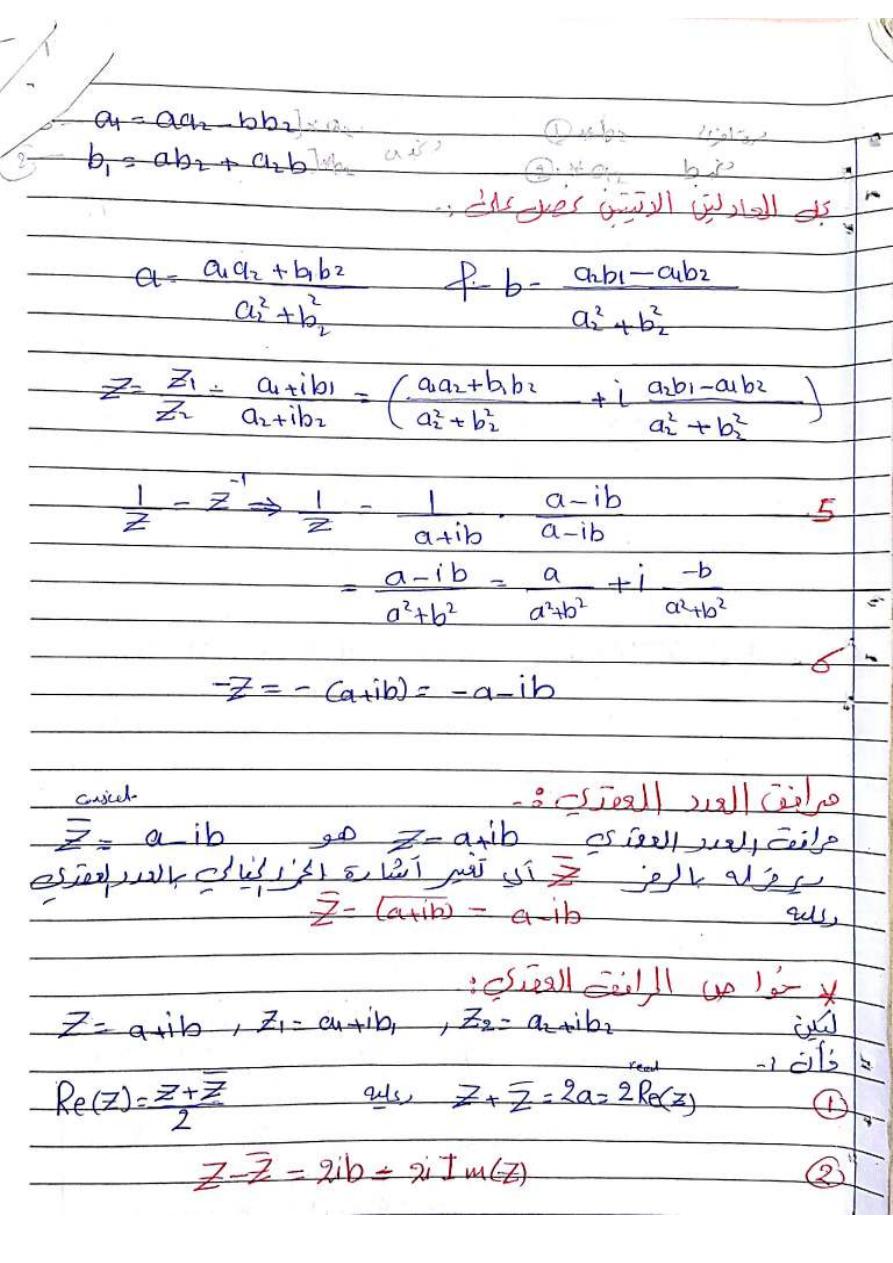 a₁ = aa₂ - bb₂]
b₁ = ab₂ + a₂b]
بحل المعادلتين الاتيتين نحصل على :.
a = (a₁a₂ + b₁b₂)/(a₂² + b₂²) & b = (a₂b₁ - a₁b₂)/(a₂² + b₂²)
Z = Z₁/Z₂ = (a₁+ib₁)/(a₂+ib₂) = ((a₁a₂+b₁b₂)/(a₂²+b₂²) + i (a₂b₁-a₁b₂)/(a₂²+b₂²))
5 1/Z = Z⁻¹ ⇒ 1/Z = 1/(a+ib) · (a-ib)/(a-ib)
= (a-ib)/(a²+b²) = a/(a²+b²) + i (-b)/(a²+b²)
6
-Z = -(a+ib) = -a-ib
مرافق العدد العقدي :-
مرافق العدد العقدي Z = a+ib هو Z̅ = a-ib
يرمز له بالرمز Z̅ أي تغير أشارة الجزء الخيالي بالعدد العقدي
وعليه Z̅ = (a+ib)̅ = a-ib
خواص المرافق العقدي :
ليكن Z = a+ib , Z₁ = a₁+ib₁ , Z₂ = a₂+ib₂
فأن :-
real
① Z + Z̅ = 2a = 2Re(z) وعليه Re(Z) = (Z + Z̅)/2
② Z - Z̅ = 2ib = 2i Im(Z)